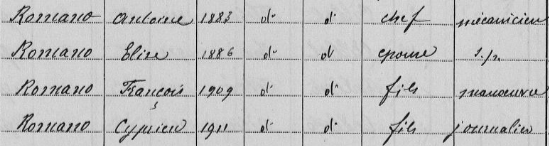 Romano Antoine 1883 d° d° chef mécanicien
Romano Elise 1886 d° d° epouse s.p.
Romano François 1909 d° d° fils manoeuvre
Romano Cyprien 1911 d° d° fils journalier